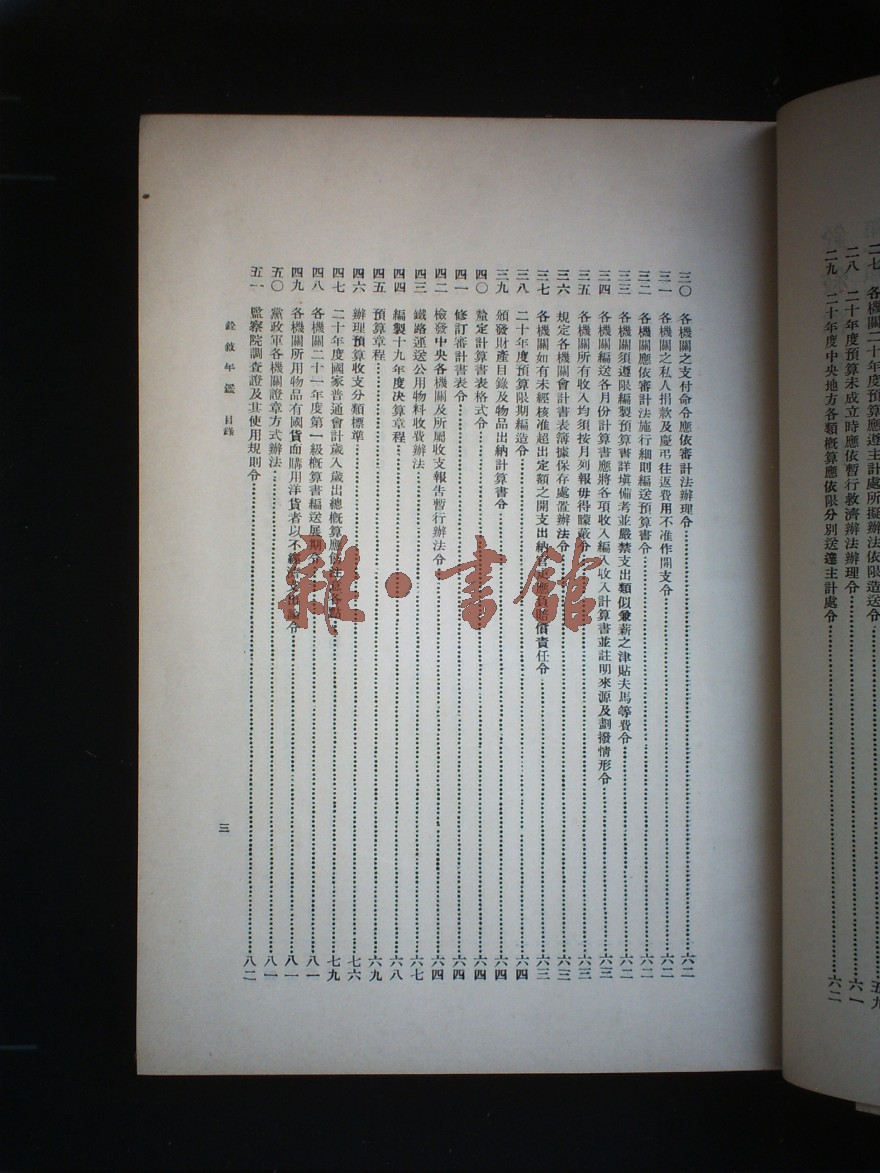 二七　各機關二十年度預算應遵主計處所擬辦法依限造送令……五九
二八　二十年度預算未成立時應依暫行救濟辦法辦理令……六一
二九　二十年度中央地方各類概算應依限分別送達主計處令……六二
三〇　各機關之支付命令應依審計法辦理令……六二
三一　各機關之私人捐款及慶弔往返費用不准作開支令……六二
三二　各機關應依審計法施行細則編送預算書令……六二
三三　各機關須遵限編製預算書詳填備考並嚴禁支出類似兼薪之津貼夫馬等費令……六二
三四　各機關編送各月份計算書應將各項收入編入收入計算書並註明來源及劃撥情形令……六三
三五　各機關所有收入均須按月列報毋得矇叢令……六三
三六　規定各機關會計書表簿據保存處置辦法令……六三
三七　各機關如有未經核准超出定額之開支出納官吏應負賠償責任令……六三
三八　二十年度預算限期編造令……六四
三九　頒發財產目錄及物品出納計算書令……六四
四〇　釐定計算書表格式令……六四
四一　修訂審計書表令……六四
四二　檢發中央各機關及所屬收支報告暫行辦法令……六四
四三　鐵路運送公用物料收費辦法……六七
四四　編製十九年度決算章程……六八
四五　預算章程……六九
四六　辦理預算收支分類標準……七六
四七　二十年度國家普通會計歲入歲出總概算應注意各點……七九
四八　各機關二十一年度第一級概算書編送展期令……八一
四九　各機關所用物品有國貨而購用洋貨者以不經濟支出論令……八一
五〇　黨政軍各機關證章方式辦法……八一
五一　監察院調查證及其使用規則令……八二
銓敘年鑑　目錄
三
雜·書館